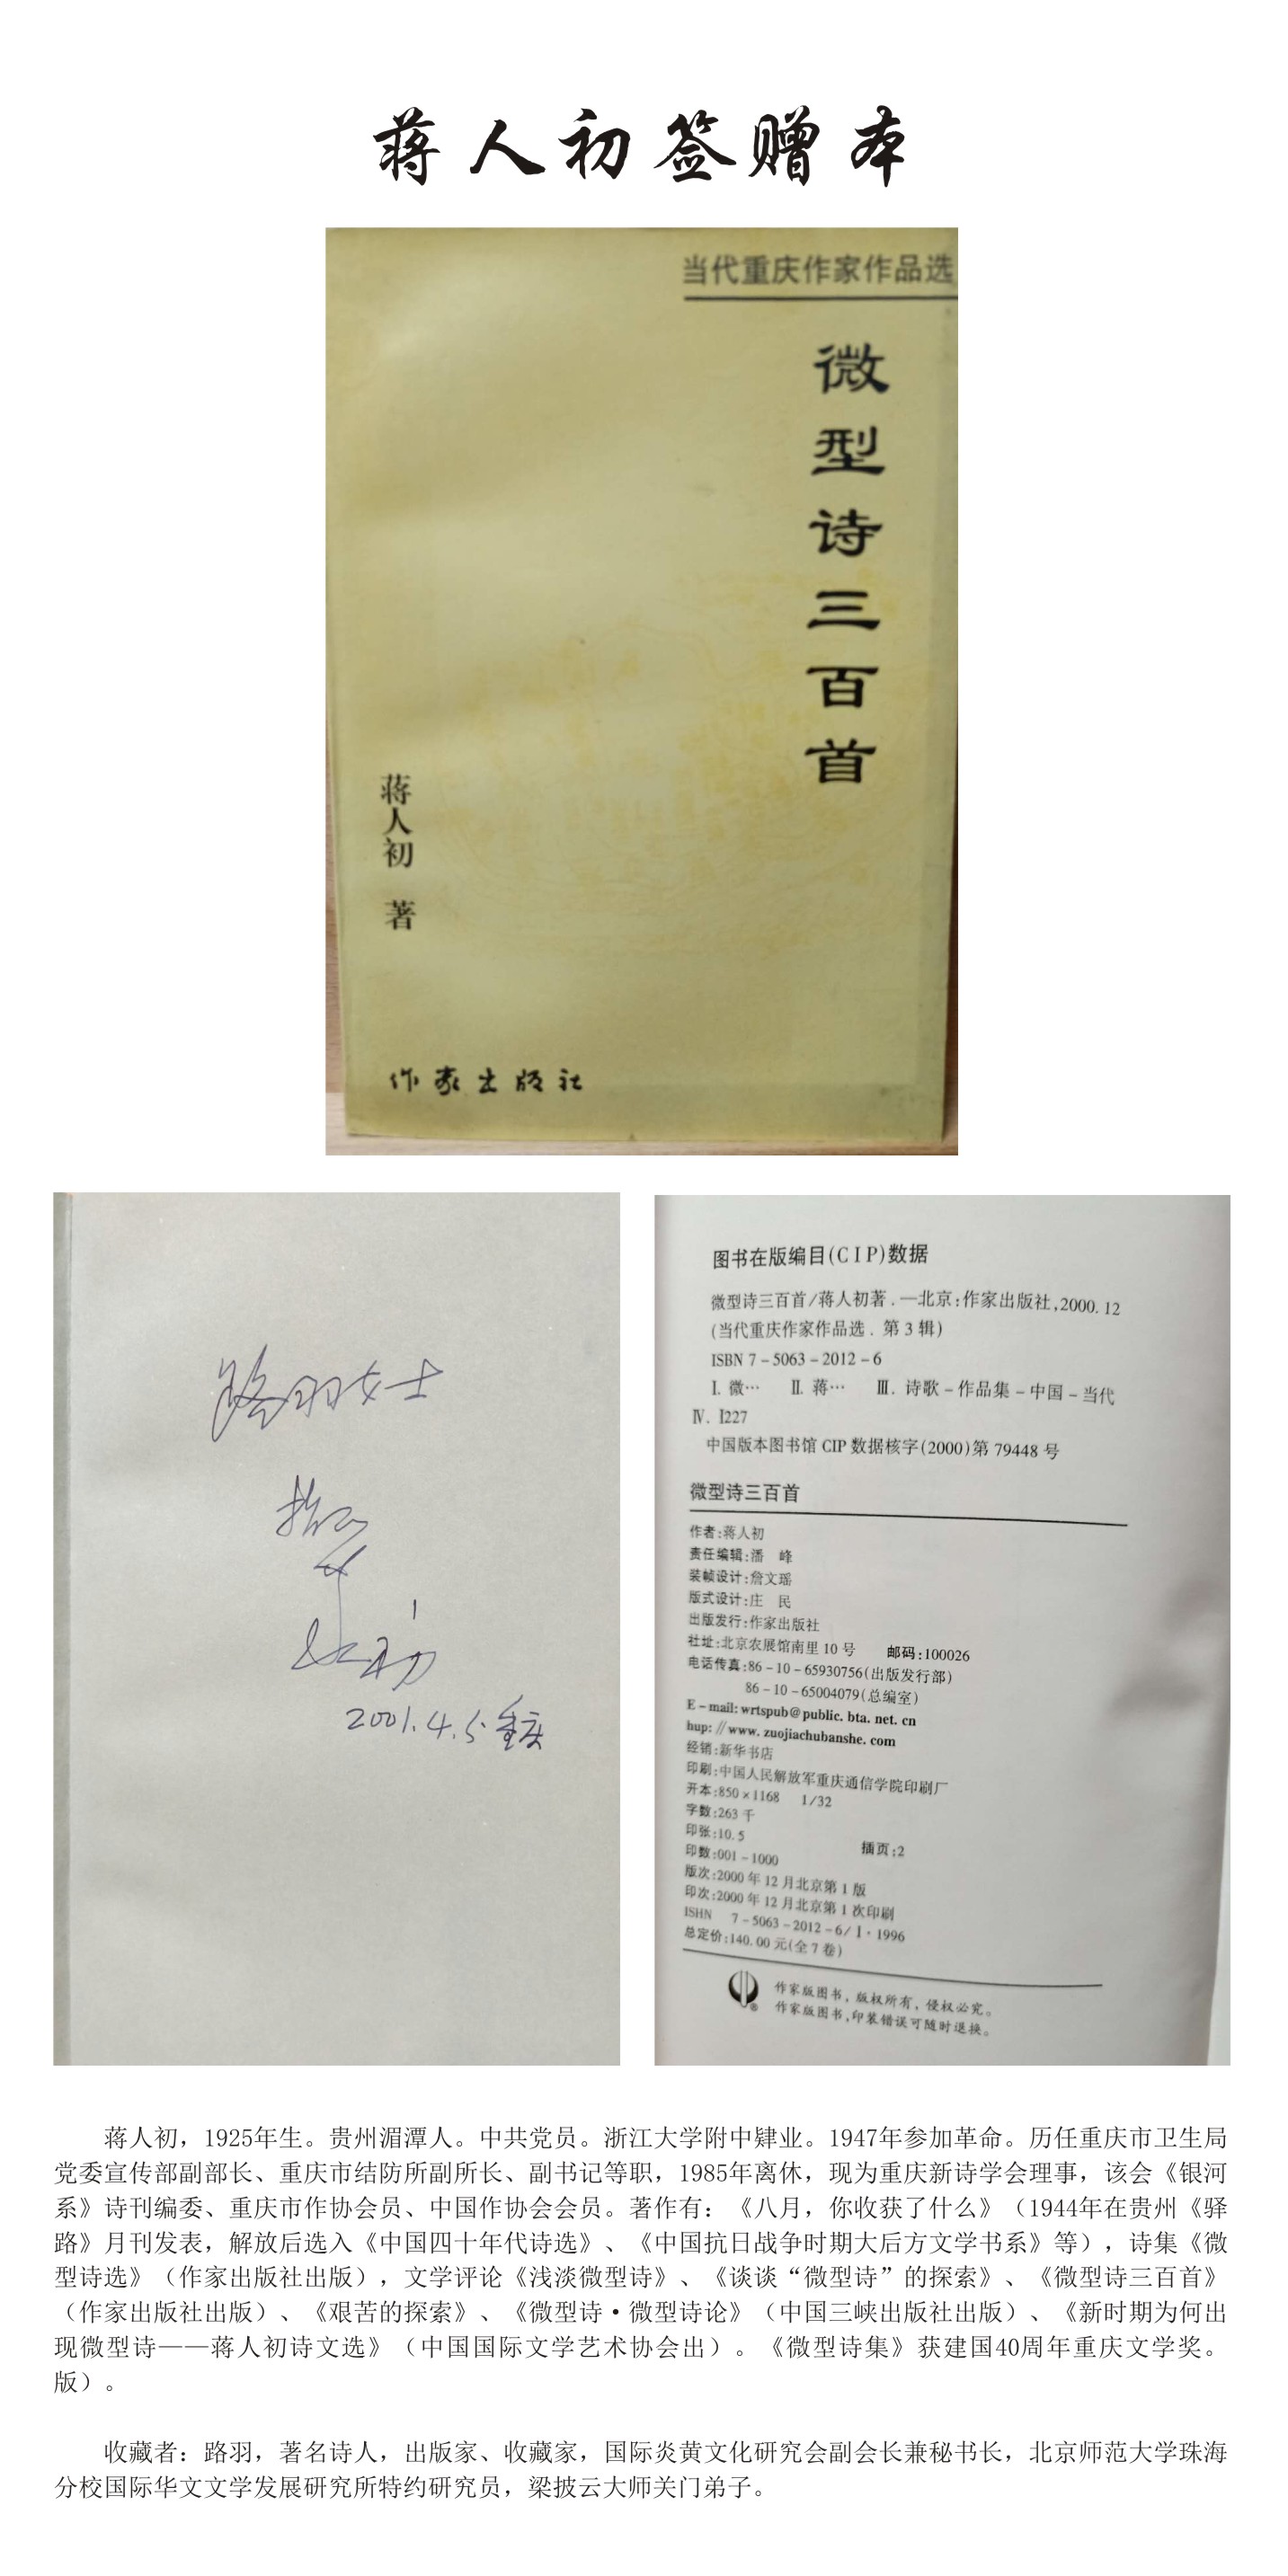 蒋人初签赠本
当代重庆作家作品选
微型诗三百首
蒋人初 著
作家出版社
路羽女士
指正
人初
2001.4.5.重庆
图书在版编目(CIP)数据
微型诗三百首/蒋人初著.—北京:作家出版社,2000.12
(当代重庆作家作品选.第3辑)
ISBN 7-5063-2012-6
Ⅰ.微… Ⅱ.蒋… Ⅲ.诗歌-作品集-中国-当代
Ⅳ.I227
中国版本图书馆CIP数据核字(2000)第79448号
微型诗三百首
作者:蒋人初
责任编辑:潘 峰
装帧设计:詹文瑶
版式设计:庄 民
出版发行:作家出版社
社址:北京农展馆南里10号 邮码:100026
电话传真:86-10-65930756(出版发行部)
86-10-65004079(总编室)
E-mail:wrtspub@public.bta.net.cn
hup://www.zuojiachubanshe.com
经销:新华书店
印刷:中国人民解放军重庆通信学院印刷厂
开本:850×1168 1/32
字数:263千
印张:10.5 插页:2
印数:001-1000
版次:2000年12月北京第1版
印次:2000年12月北京第1次印刷
ISHN 7-5063-2012-6/I·1996
总定价:140.00元(全7卷)
作家版图书,版权所有,侵权必究。
作家版图书,印装错误可随时退换。
蒋人初，1925年生。贵州湄潭人。中共党员。浙江大学附中肄业。1947年参加革命。历任重庆市卫生局
党委宣传部副部长、重庆市结防所副所长、副书记等职，1985年离休，现为重庆新诗学会理事，该会《银河
系》诗刊编委、重庆市作协会员、中国作协会会员。著作有：《八月，你收获了什么》（1944年在贵州《驿
路》月刊发表，解放后选入《中国四十年代诗选》、《中国抗日战争时期大后方文学书系》等），诗集《微
型诗选》（作家出版社出版），文学评论《浅淡微型诗》、《谈谈“微型诗”的探索》、《微型诗三百首》
（作家出版社出版）、《艰苦的探索》、《微型诗·微型诗论》（中国三峡出版社出版）、《新时期为何出
现微型诗——蒋人初诗文选》（中国国际文学艺术协会出）。《微型诗集》获建国40周年重庆文学奖。
版）。
收藏者：路羽，著名诗人，出版家、收藏家，国际炎黄文化研究会副会长兼秘书长，北京师范大学珠海
分校国际华文文学发展研究所特约研究员，梁披云大师关门弟子。